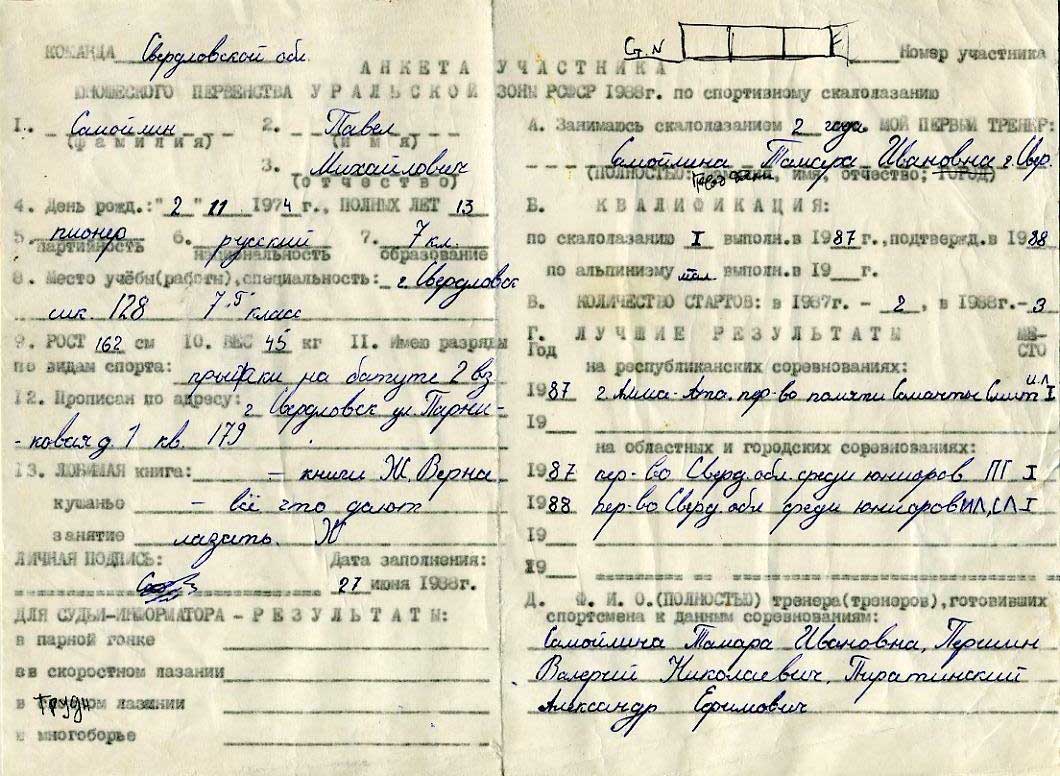 КОМАНДА Свердловской обл.
АНКЕТА УЧАСТНИКА
ЮНОШЕСКОГО ПЕРВЕНСТВА УРАЛЬСКОЙ ЗОНЫ РСФСР 1988г. по спортивному скалолазанию
1. Самойлин 2. Павел
(фамилия) (имя)
3. Михайлович
(отчество)
4. День рожд.:"2"11 1974 г., ПОЛНЫХ ЛЕТ 13
5. пионер 6. русский 7. 7 кл.
партийность национальность образование
8. Место учёбы(работы),специальность: г. Свердловск
шк. 128 7 "Г" класс
9. РОСТ 162 см 10. ВЕС 45 кг 11. Имею разряды
по видам спорта: прыжки на батуте 2 вз
12. Прописан по адресу: г Свердловск ул Парни-
-ковая д. 1 кв. 179
13. ЛЮБИМАЯ книга: - книги Ж. Верна
кушанье - всё что дают
занятие лазать.
ЛИЧНАЯ ПОДПИСЬ: Дата заполнения:
27 июня 1988г.
ДЛЯ СУДЬИ-ИНФОРМАТОРА - РЕЗУЛЬТАТЫ:
в парной гонке
в скоростном лазании
в трудн лазании
в многоборье
G.N Номер участника
А. Занимаюсь скалолазанием 2 года МОЙ ПЕРВЫЙ ТРЕНЕР:
Самойлина Тамара Ивановна г. Свер
(ПОЛНОСТЬЮ: имя, отчество; ГОРОД)
Б. КВАЛИФИКАЦИЯ:
по скалолазанию I выполн.в 1987г.,подтвержд.в 1988
по альпинизму выполн.в 19 г.
В. КОЛИЧЕСТВО СТАРТОВ: в 1987г. - 2, в 1988г.- 3
Г. ЛУЧШИЕ РЕЗУЛЬТАТЫ МЕ-
Год СТО
на республиканских соревнованиях:
1987 г. Алма-Ата. пер-во памяти Саманты Смит и.л I
19
на областных и городских соревнованиях:
1987 пер-во Сверд. обл. среди юниоров ПГ I
1988 пер-во Сверд. обл среди юниоров ИЛ, СЛ I
19
19
Д. Ф. И. О.(ПОЛНОСТЬЮ) тренера(тренеров),готовивших
спортсмена к данным соревнованиям:
Самойлина Тамара Ивановна, Першин
Валерий Николаевич, Пиратинский
Александр Ефимович